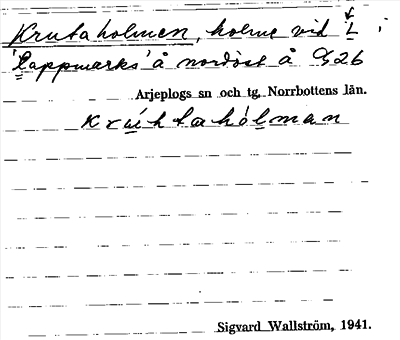 Krutaholmen, holme vid L i
'Lappmarks' å nordöst å G26
Arjeplogs sn och tg, Norrbottens län.
Kruhtahólman
Sigvard Wallström, 1941.